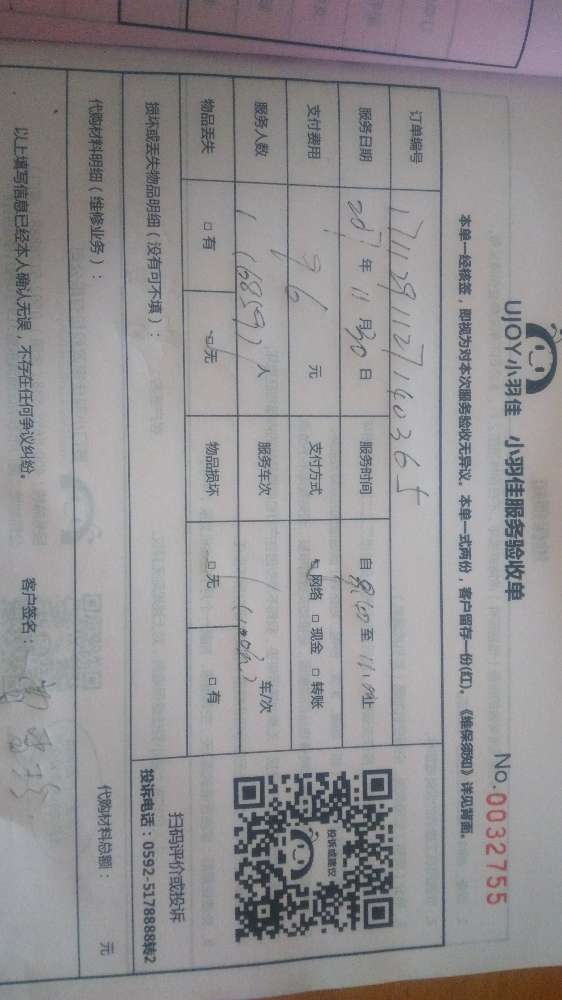 UJOY小羽佳 小羽佳服务验收单
No.0032755
本单一经核签，即视为对本次服务验收无异议。本单一式两份，客户留存一份(红)。《维保须知》详见背面。
订单编号
服务日期 2017年 11月30日 服务时间 自 至 止
支付费用 96 元 支付方式 □网络 □现金 □转账
服务人数 1 (16859) 人 服务车次 1 车/次
物品丢失 □有 □无 物品损坏 □无 □有
损坏或丢失物品明细（没有可不填）：
投诉或建议
扫码评价或投诉
投诉电话：0592-5178888转2
代购材料明细（维修业务）： 代购材料总额： 元
以上填写信息已经本人确认无误，不存在任何争议纠纷。 客户签名：